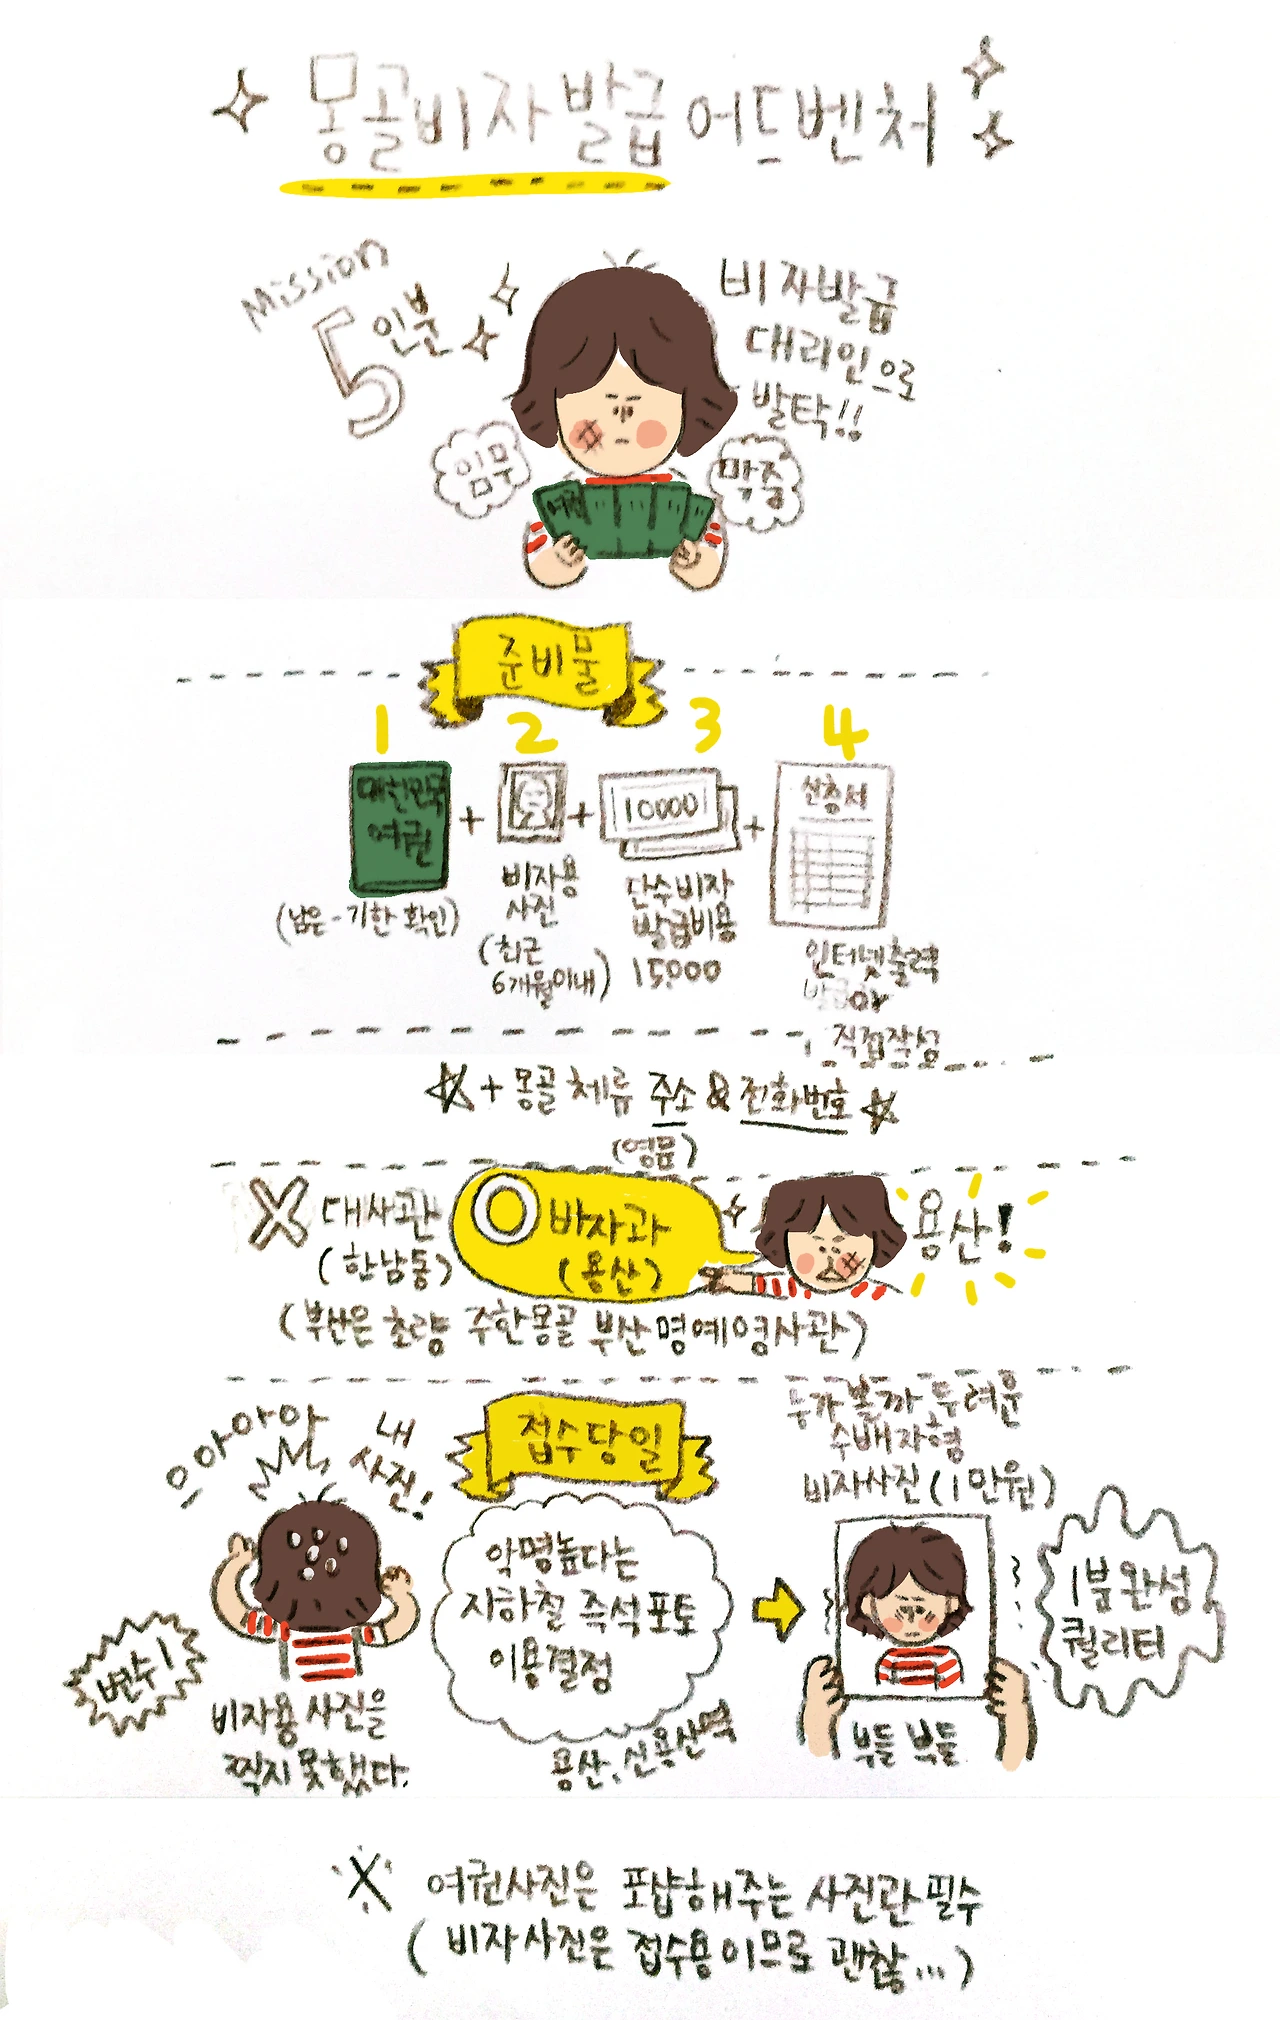 몽골비자발급 어드벤처
Mission
5인분
비자발급
대리인으로
발탁!!
임무
막중
여권
준비물
1 2 3 4
대한민국
여권
(남은-기한 확인)
+
비자용
사진
(최근
6개월이내)
+
10000
단수비자
발급비용
15,000
+
신청서
인터넷출력
or
직접작성
☆+몽골 체류 주소 & 전화번호☆
(영문)
X 대사관
(한남동)
O 비자과
(용산)
용산!
(부산은 초량 주한몽골 부산명예영사관)
접수당일
으아아아
내
사진!
변수1
비자용 사진을
찍지 못했다.
악명높다는
지하철 즉석포토
이용결정
용산, 신용산역
누가 볼까 두려운
수배자형
비자사진(1만원)
부들 부들
1분완성
퀄리티
※ 여권사진은 포샵해주는 사진관 필수
(비자사진은 접수용이므로 괜찮...)